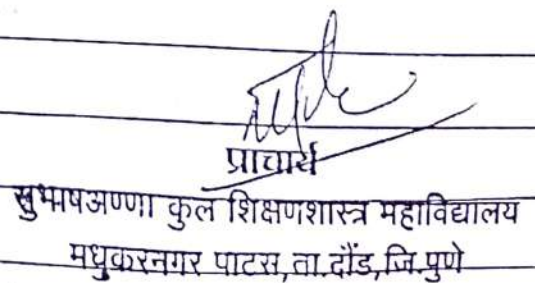 प्राचार्य
सुभाषअण्णा कुल शिक्षणशास्त्र महाविद्यालय
मधुकरनगर पाटस, ता.दौंड, जि.पुणे